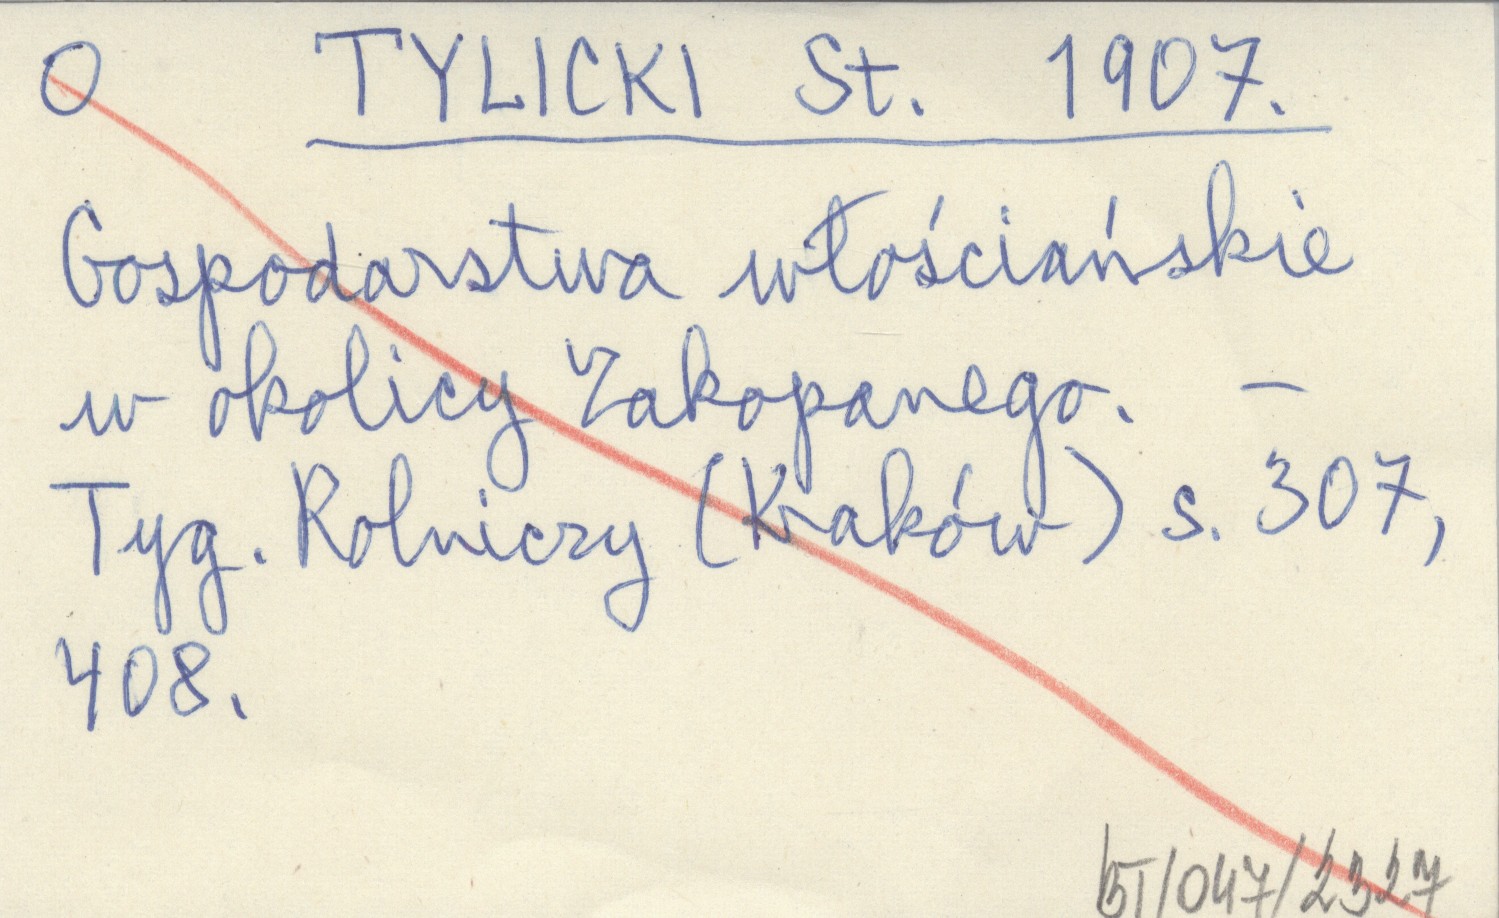 O TYLICKI St. 1907.
Gospodarstwa włościańskie
w okolicy Zakopanego. –
Tyg. Rolniczy (Kraków) s. 307,
408.
BT/047/2327